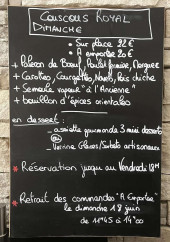 Couscous Royal
Dimanche
• Sur place 22 €
• A emporter 20 €
+ Paleron de Bœuf, Poulet fermier, Merguez
+ Carottes, Courgettes, Navets, Pois chiche
+ Semoule vapeur "à l'Ancienne"
+ bouillon d'épices orientales
en dessert :
assiette gourmande 3 mini desserts
ou
Verrine Glaces/Sorbets artisanaux
* Réservation jusqu'au Vendredi 18H
* Retrait des commandes "A Emporter"
le dimanche 18 juin
de 11H45 à 14H00